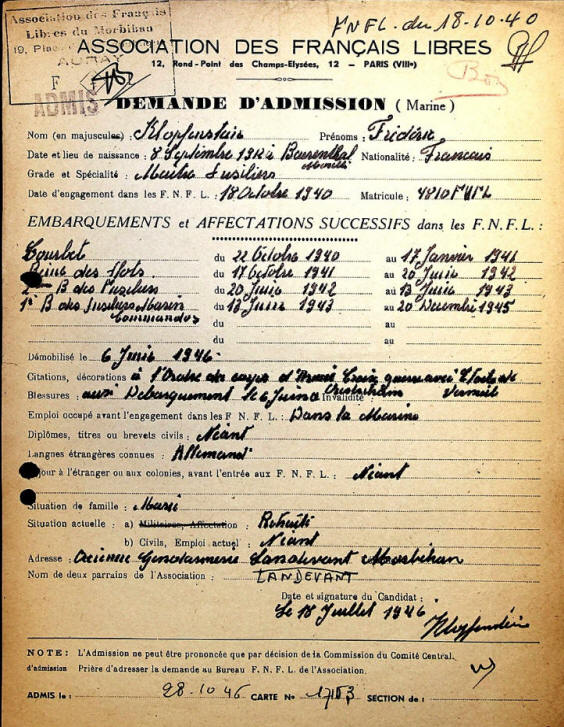 Association des Français
Libres du Morbihan
19, Place
AURAY
F
ADMIS
FNFL. du 18-10-40
ASSOCIATION DES FRANÇAIS LIBRES
12, Rond-Point des Champs-Elysées, 12 — PARIS (VIIIe)
DEMANDE D'ADMISSION (Marine)
Nom (en majuscules) : Klopfenstein Prénoms : Frédéric
Date et lieu de naissance : 8 Septembre 1912 à Baerenthal Moselle Nationalité : Français
Grade et Spécialité : Maitre Fusiliers
Date d'engagement dans les F. N. F. L. : 18 Octobre 1940 Matricule : 4810 FNFL
EMBARQUEMENTS et AFFECTATIONS SUCCESSIFS dans les F. N. F. L. :
Courbet du 22 Octobre 1940 au 17 Janvier 1941
Reine des flots du 17 Octobre 1941 au 20 Juin 1942
2e B des Fusiliers du 20 Juin 1942 au 13 Juin 1943
1er B des fusiliers Marin du 13 Juin 1943 au 20 Decembre 1945
Commandos du au
du au
Démobilisé le 6 Juin 1946
Citations, décorations à l'Ordre du corps d'Armée Croix guerre avec Etoile de
Blessures : au Debarquement le 6 Juin a Ouistreham Invalidité : Vermeil
Emploi occupé avant l'engagement dans les F N. F. L. : Dans la Marine
Diplômes, titres ou brevets civils : Néant
Langues étrangères connues : Allemand
Séjour à l'étranger ou aux colonies, avant l'entrée aux F. N. F. L. : Néant
Situation de famille : Marié
Situation actuelle : a) Militaires, Affectation : Retraité
b) Civils, Emploi actuel : Néant
Adresse : Ancienne Gendarmerie Landevant Morbihan
Nom de deux parrains de l'Association : LANDEVANT
Date et signature du Candidat :
Le 18 Juillet 1946
Klopfenstein
NOTE : L'Admission ne peut être prononcée que par décision de la Commission du Comité Central.
d'admission Prière d'adresser la demande au Bureau F. N. F. L. de l'Association.
ADMIS le : 28.10.46 CARTE No SECTION de :